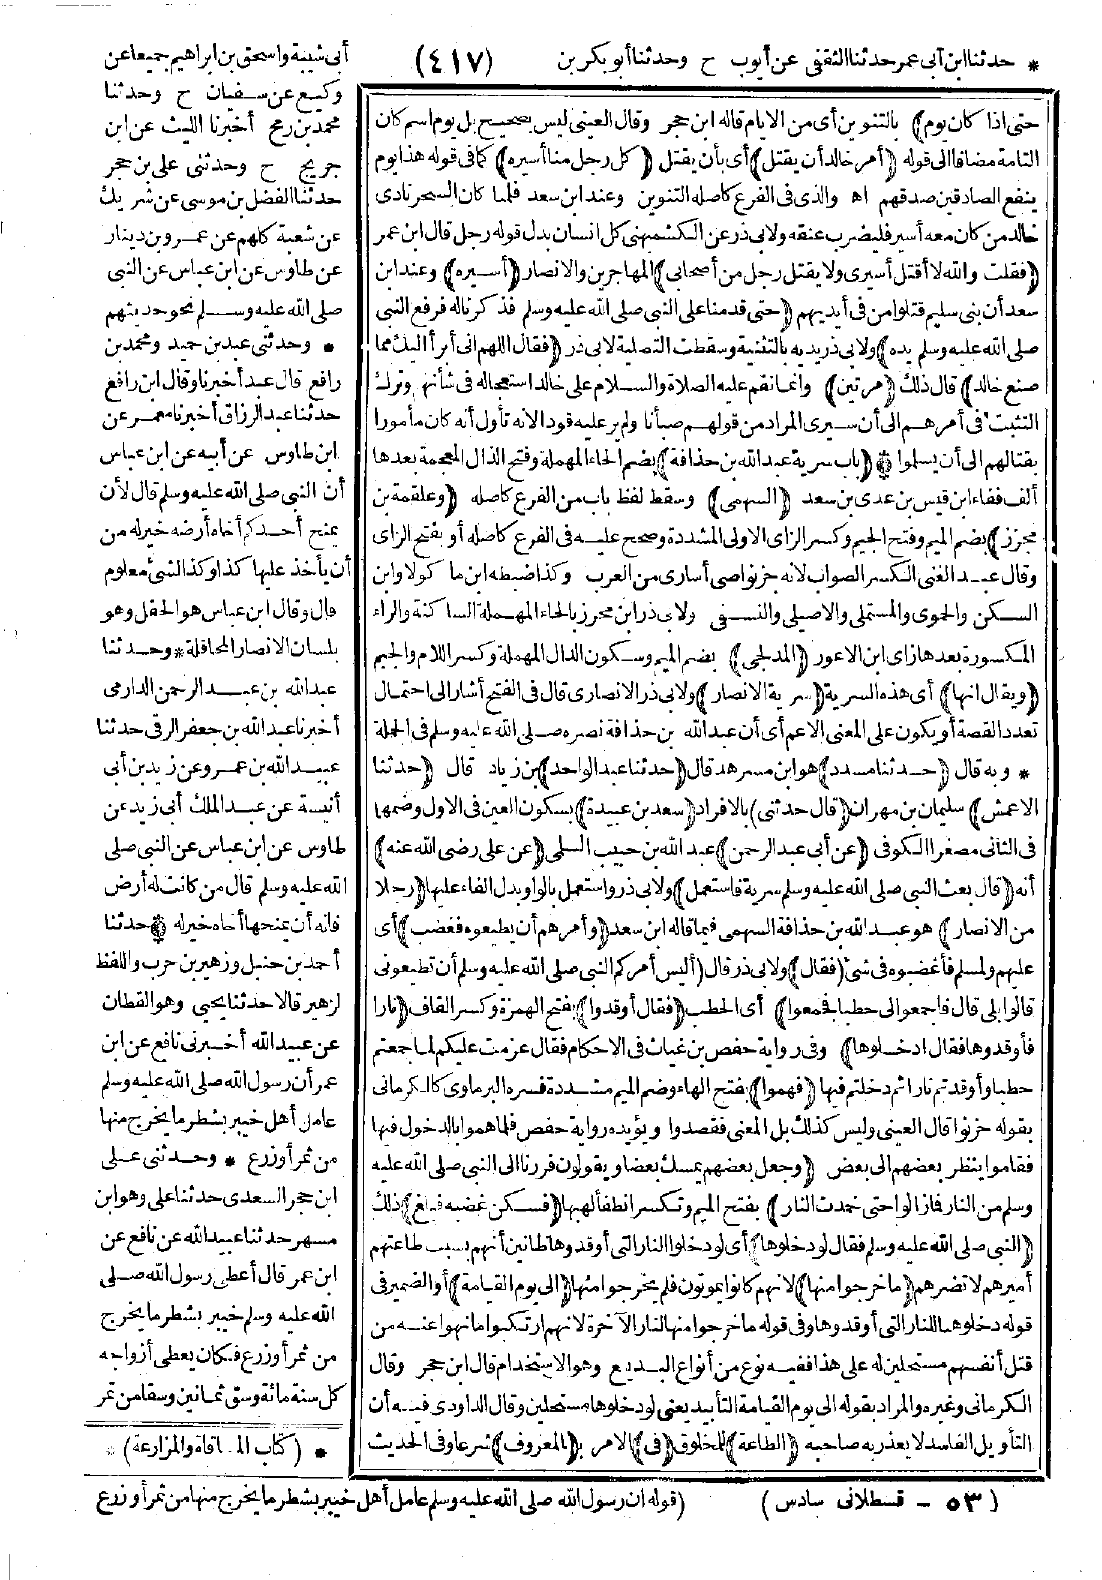 * حدثنا ابن أبى عمر حدثنا الثقفى عن أيوب ح وحدثنا أبو بكر بن
(٤١٧)
أبى شيبة واسحق بن ابراهيم جميعا عن
وكيع عن سفيان ح وحدثنا
محمد بن رمح أخبرنا الليث عن ابن
جريج ح وحدثنى على بن حجر
حدثنا الفضل بن موسى عن شريك
عن شعبة كلهم عن عمرو بن دينار
عن طاوس عن ابن عباس عن النبى
صلى الله عليه وسلم نحو حديثهم
* وحدثنى عبد بن حميد ومحمد بن
رافع قال عبد أخبرنا وقال ابن رافع
حدثنا عبد الرزاق أخبرنا معمر عن
ابن طاوس عن أبيه عن ابن عباس
أن النبى صلى الله عليه وسلم قال لأن
يمنح أحدكم أخاه أرضه خير له من
أن يأخذ عليها كذا وكذا لشئ معلوم
قال وقال ابن عباس هو الحقل وهو
بلسان الانصار المحاقلة * وحدثنا
عبد الله بن عبد الرحمن الدارمى
أخبرنا عبد الله بن جعفر الرقى حدثنا
عبيد الله بن عمرو عن زيد بن أبى
أنيسة عن عبد الملك أبى زيد عن
طاوس عن ابن عباس عن النبى صلى
الله عليه وسلم قال من كانت له أرض
فانه أن يمنحها أخاه خير له حدثنا
أحمد بن حنبل وزهير بن حرب واللفظ
لزهير قالا حدثنا يحيى وهو القطان
عن عبيد الله أخبرنى نافع عن ابن
عمر أن رسول الله صلى الله عليه وسلم
عامل أهل خيبر بشطر ما يخرج منها
من ثمر أو زرع * وحدثنى على
ابن حجر السعدى حدثنا على وهو ابن
مسهر حدثنا عبيد الله عن نافع عن
ابن عمر قال أعطى رسول الله صلى
الله عليه وسلم خيبر بشطر ما يخرج
من ثمر أو زرع فكان يعطى أزواجه
كل سنة مائة وسق ثمانين وسقا من تمر
* (كتاب المساقاة والمزارعة) *
حتى اذا كان يوم) بالتنوين أى من الايام قاله ابن حجر وقال العينى ليس بصحيح بل يوم اسم كان
التامة مضافا الى قوله (أمر خالد أن يقتل) أى بأن يقتل (كل رجل منا أسيره) كما فى قوله هذا يوم
ينفع الصادقين صدقهم اه والذى فى الفرع كاصله التنوين وعند ابن سعد فلما كان السحر نادى
خالد من كان معه أسير فليضرب عنقه ولابى ذر عن الكشميهنى كل انسان بدل قوله رجل قال ابن عمر
(فقلت والله لا أقتل أسيرى ولا يقتل رجل من أصحابى) المهاجرين والانصار (أسيره) وعند ابن
سعد أن بنى سليم قتلوا من فى أيديهم (حتى قدمنا على النبى صلى الله عليه وسلم فذكرناه فرفع النبى
صلى الله عليه وسلم يده) ولابى ذر يديه بالتثنية وسقطت التصلية لابى ذر (فقال اللهم انى أبرأ اليك مما
صنع خالد) قال ذلك (مرتين) وانما نقم عليه الصلاة والسلام على خالد استعجاله فى شأنهم وترك
التثبت فى أمرهم الى أن سيرى المراد من قولهم صبأنا ولم ير عليه قودا لانه تأول أنه كان مأمورا
بقتالهم الى أن يسلموا (باب سرية عبد الله بن حذافة) بضم الحاء المهملة وفتح الذال المعجمة بعدها
ألف ففاء ابن قيس بن عدى بن سعد (السهمى) وسقط لفظ باب من الفرع كاصله (وعلقمة بن
مجزز) بضم الميم وفتح الجيم وكسر الزاى الاولى المشددة وصحح عليه فى الفرع كاصله أو بفتح الزاى
وقال عبد الغنى الكسر الصواب لانه جز نواصى أسارى من العرب وكذا ضبطه ابن ماكولا وابن
السكن والحموى والمستملى والاصيلى والنسفى ولابى ذر ابن محرز بالحاء المهملة الساكنة والراء
المكسورة بعدها زاى ابن الاعور (المدلجى) بضم الميم وسكون الدال المهملة وكسر اللام والجيم
(ويقال انها) أى هذه السرية (سرية الانصار) ولابى ذر الانصارى قال فى الفتح أشار الى احتمال
تعدد القصة أو يكون على المعنى الاعم أى أن عبد الله بن حذافة نصره صلى الله عليه وسلم فى الجملة
* وبه قال (حدثنا مسدد) هو ابن مسرهد قال (حدثنا عبد الواحد) بن زياد قال (حدثنا
الاعمش) سليمان بن مهران (قال حدثنى) بالافراد (سعد بن عبيدة) بسكون العين فى الاول وضمها
فى الثانى مصغرا الكوفى (عن أبى عبد الرحمن) عبد الله بن حبيب السلمى (عن على رضى الله عنه)
أنه (قال بعث النبى صلى الله عليه وسلم سرية فاستعمل) ولابى ذر واستعمل بالواو بدل الفاء عليها (رجلا
من الانصار) هو عبد الله بن حذافة السهمى فيما قاله ابن سعد (وأمرهم أن يطيعوه فغضب) أى
عليهم ولمسلم فأغضبوه فى شئ (فقال) ولابى ذر قال (أليس أمركم النبى صلى الله عليه وسلم أن تطيعونى
قالوا بلى قال فاجمعوا لى حطبا فجمعوا) أى الحطب (فقال أوقدوا) بفتح الهمزة وكسر القاف (نارا
فأوقدوها فقال ادخلوها) وفى رواية حفص بن غياث فى الاحكام فقال عزمت عليكم لما جمعتم
حطبا وأوقدتم نارا ثم دخلتم فيها (فهموا) بفتح الهاء وضم الميم مشددة فسره البرماوى كالكرمانى
بقوله حزنوا قال العينى وليس كذلك بل المعنى فقصدوا ويؤيده رواية حفص فلما هموا بالدخول فيها
فقاموا ينظر بعضهم الى بعض (وجعل بعضهم يمسك بعضا ويقولون فررنا الى النبى صلى الله عليه
وسلم من النار فما زالوا حتى خمدت النار) بفتح الميم وتكسر انطفأ لهبها (فسكن غضبه فبلغ) ذلك
(النبى صلى الله عليه وسلم فقال لو دخلوها) أى لو دخلوا النار التى أوقدوها ظانين أنهم بسبب طاعتهم
أميرهم لا تضرهم (ما خرجوا منها) لانهم كانوا يموتون فلم يخرجوا منها (الى يوم القيامة) أو الضمير فى
قوله دخلوها للنار التى أوقدوها وفى قوله ما خرجوا منها لنار الآخرة لانهم ارتكبوا ما نهوا عنه من
قتل أنفسهم مستحلين له على هذا ففيه نوع من أنواع البديع وهو الاستخدام قال ابن حجر وقال
الكرمانى وغيره والمراد بقوله الى يوم القيامة التأبيد يعنى لو دخلوها مستحلين وقال الداودى فيه أن
التأويل الفاسد لا يعذر به صاحبه (الطاعة) للمخلوق (فى) الامر (بالمعروف) شرعا وفى الحديث
(٥٣ - قسطلانى سادس)
(قوله ان رسول الله صلى الله عليه وسلم عامل أهل خيبر بشطر ما يخرج منها من ثمر أو زرع